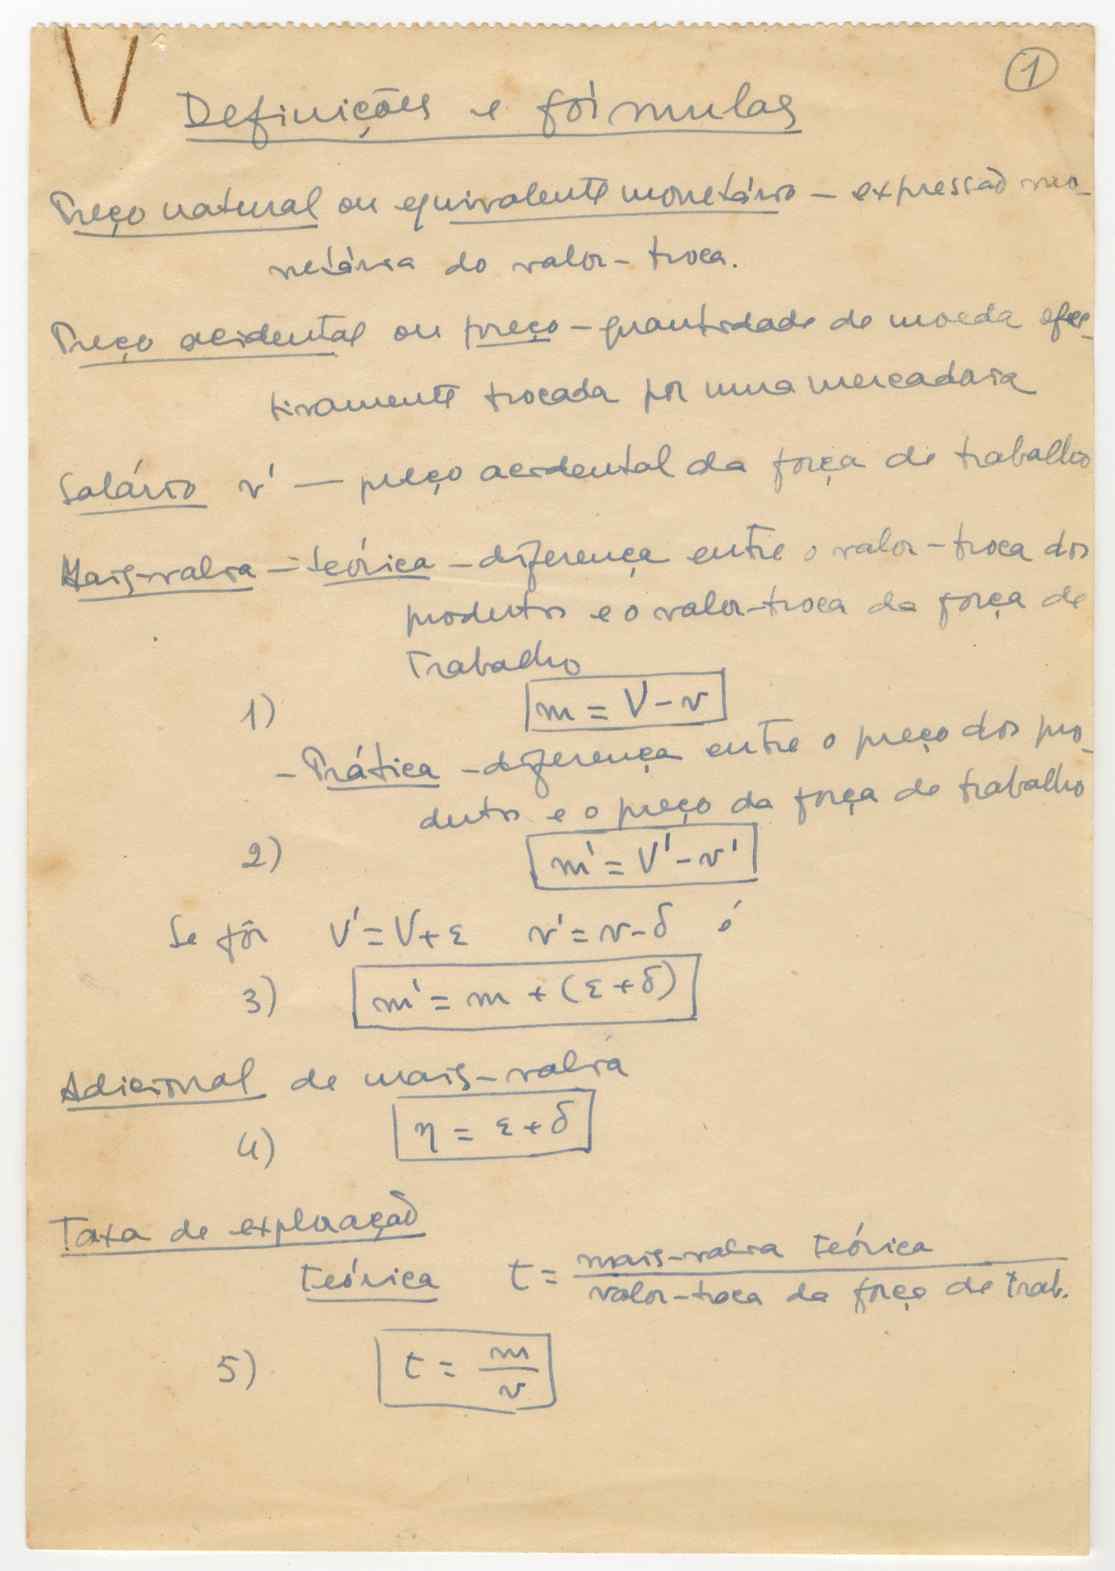 1
Definições e fórmulas
Preço natural ou equivalente monetário – expressão mo-
netária do valor-troca.
Preço acidental ou preço – quantidade de moeda efec-
tivamente trocada por uma mercadoria
Salário v' — preço acidental da força de trabalho
Mais-valia – teórica – diferença entre o valor-troca dos
produtos e o valor-troca da força de
trabalho
1) m = V – v
– Prática – diferença entre o preço dos pro-
dutos e o preço da força de trabalho
2) m' = V' – v'
Se fôr V' = V + ε v' = v – δ é
3) m' = m + (ε + δ)
Adicional de mais-valia
4) η = ε + δ
Taxa de exploração
teórica t = mais-valia teórica
valor-troca da força de trab.
5) t = m/v